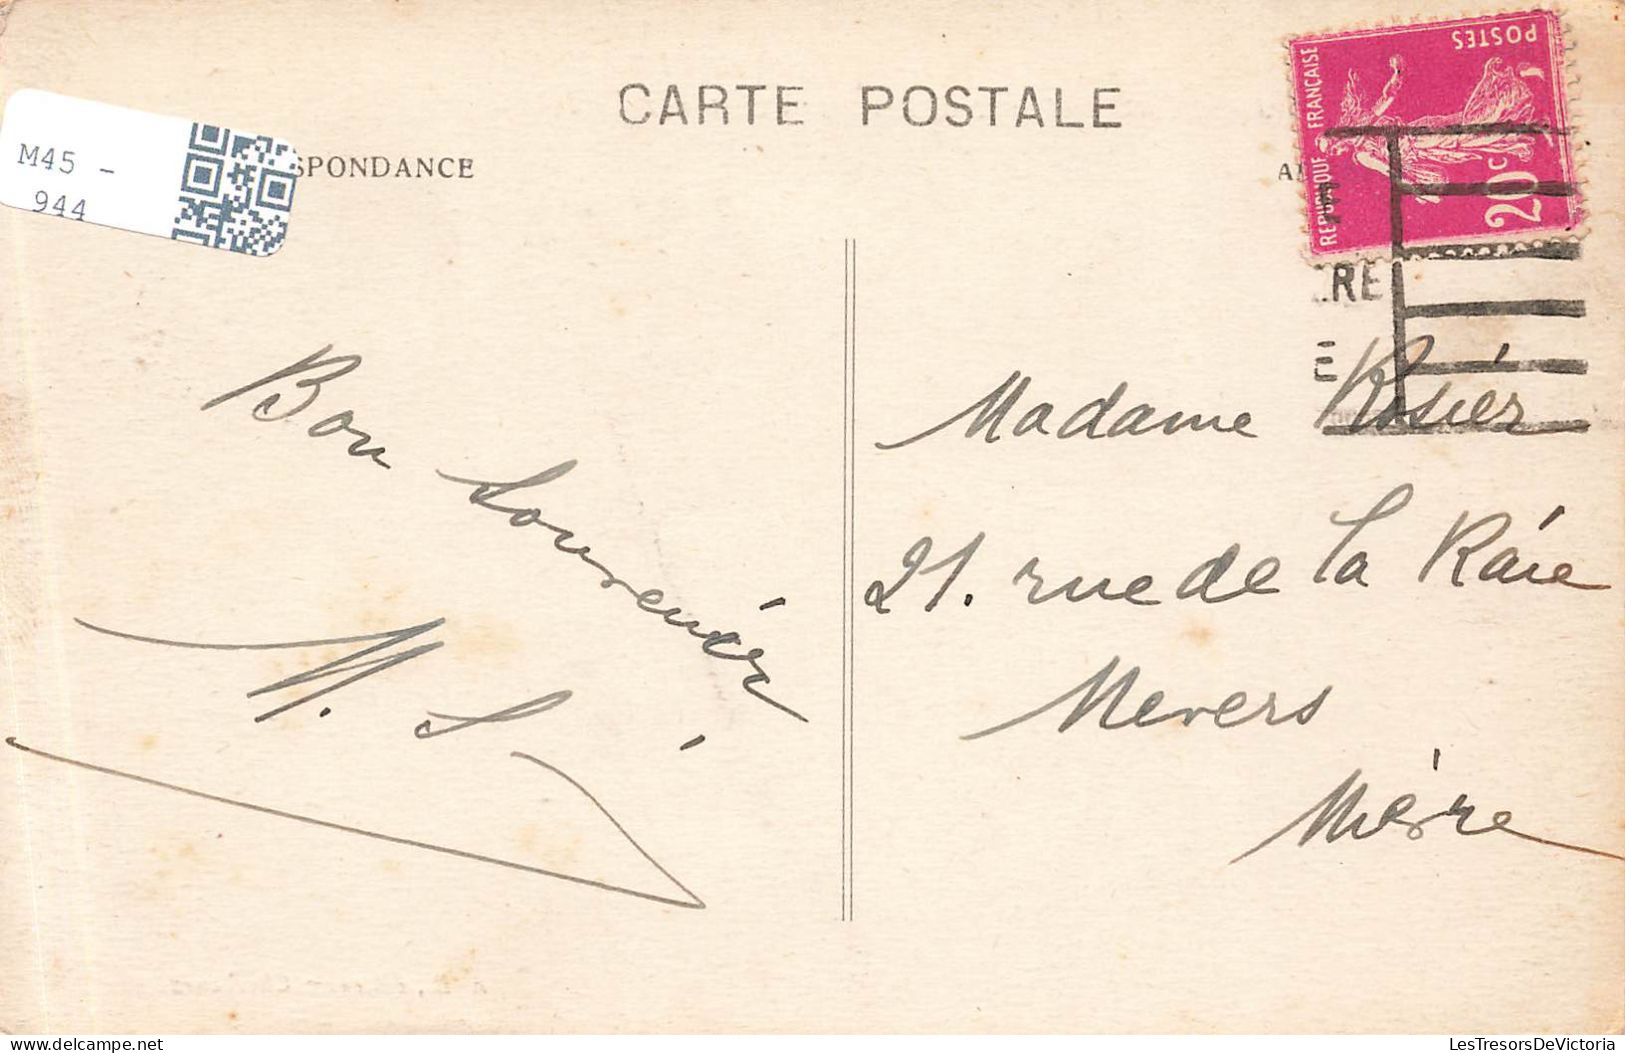 CARTE POSTALE
SPONDANCE
M45 -
944
POSTES
REPUBLIQUE FRANÇAISE
20c
RE
E
Bon Souvenir
M. S
Madame Rosier
21. rue de la Raie
Nevers
Nièvre
www.delcampe.net
LesTresorsDeVictoria